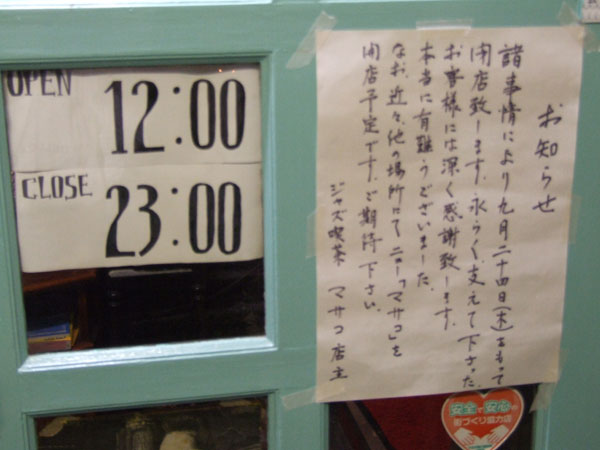 OPEN
12:00
CLOSE
23:00
お知らせ
諸事情により九月二十四日(木)をもって
閉店致します。永らく支えて下さった
お客様には深く感謝致します。
本当に有難うございました。
なお、近々、他の場所にてニュー「マサコ」を
開店予定です。ご期待下さい。
ジャズ喫茶 マサコ店主
安全で安心の
街づくり協力店